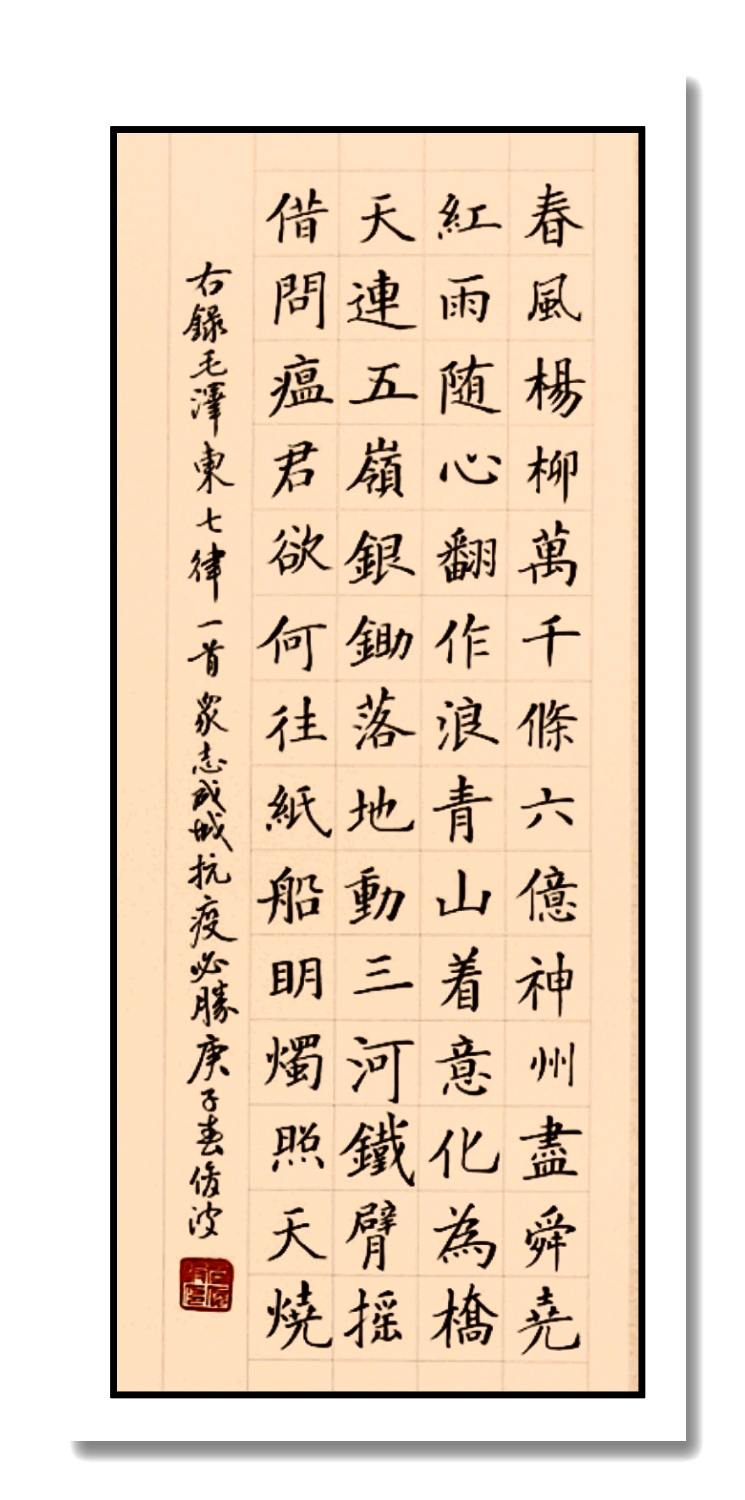 春風楊柳萬千條六億神州盡舜堯
紅雨随心翻作浪青山着意化為橋
天連五嶺銀鋤落地動三河鐵臂摇
借問瘟君欲何往紙船明燭照天燒
右録毛澤東七律一首衆志成城抗疫必勝庚子春俊波